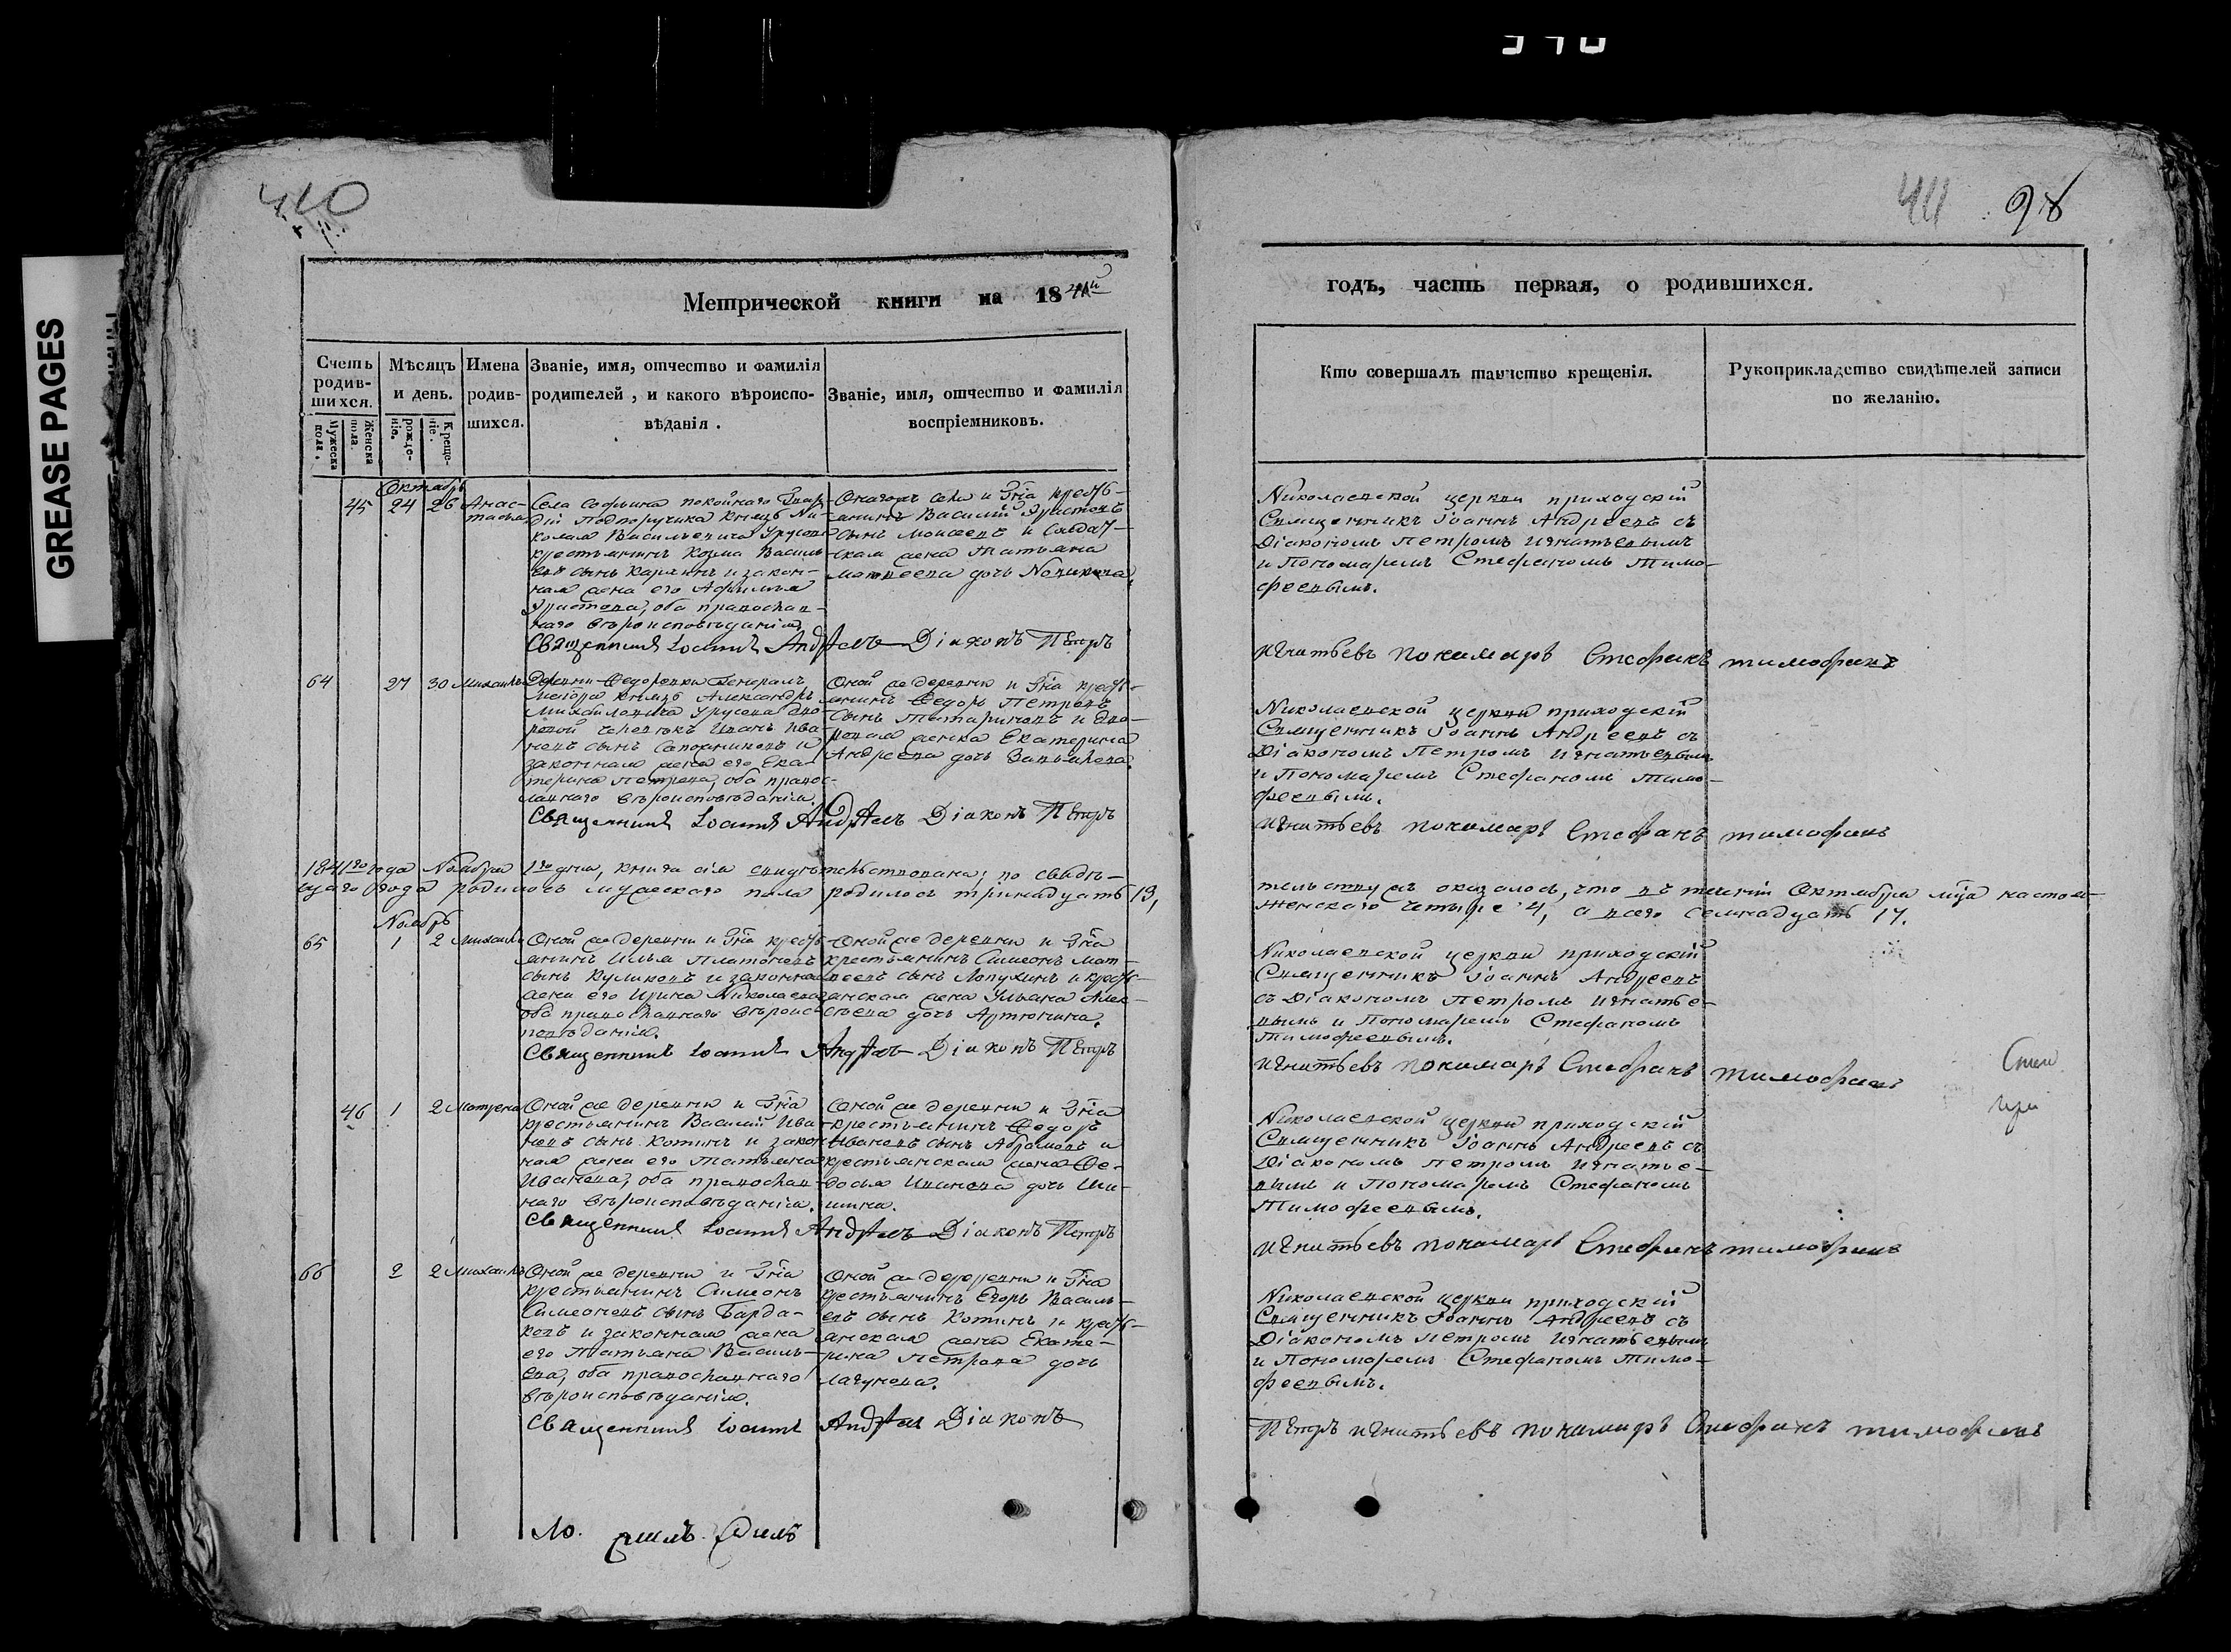 GREASE PAGES
410
411 98
Метрической книги на 1841й
годъ, часть первая, о родившихся.
Счетъ родив-
шихся.
Мужеска пола.
Женска пола.
Мѣсяцъ
и день.
рожде-
нiе.
Креще-
нiе.
Имена
родив-
шихся.
Званiе, имя, отчество и фамилiя
родителей, и какого вѣроиспо-
вѣданiя.
Званiе, имя, отчество и фамилiя
воспрiемниковъ.
Кто совершалъ таинство крещенiя.
Рукоприкладство свидѣтелей записи
по желанiю.
Октябрь
45 24 26 Анас-
тасья
Села Софьина покойнаго Гвар-
дiи Подпоручика князь Ни-
колая Васильевича Урусова
крестьянинъ Козма Василь-
евъ сынъ Карякинъ и закон-
ная жена его Афимья
Христова, оба православ-
наго вѣроисповѣданiя
Онагожъ села и Гна кресть-
янинъ Василiй Христовъ
сынъ Моисеевъ и солдат-
ская жена Татьяна
Матвеева дочь Новикова.
Николаевской церкви приходскiй
Священникъ Iоаннъ Андреевъ съ
Дiакономъ Петромъ Игнатьевымъ
и Пономаремъ Стефаномъ Тимо-
феевымъ.
Священникъ Iоаннъ Андреевъ Дiаконъ Петръ
Игнатьевъ пономарь Стефанъ Тимофеевъ
64 27 30 Михаилъ
Деревни Федоровки Генералъ
Маiора князь Александръ
Михайловича Урусова дво-
ровой человѣкъ Иванъ Ива-
новъ сынъ Сапожниковъ и
законная жена его Ека-
терина Петрова, оба правос-
лавнаго вѣроисповѣданiя.
Оной же деревни и Гна кресть-
янинъ Федоръ Петровъ
сынъ Татариновъ и дво-
ровая женка Екатерина
Андреева дочь
Николаевской церкви приходскiй
Священникъ Iоаннъ Андреевъ съ
Дiакономъ Петромъ Игнатьевымъ
и Пономаремъ Стефаномъ Тимо-
феевымъ.
Священникъ Iоаннъ Андреевъ Дiаконъ Петръ
Игнатьевъ пономарь Стефанъ Тимофеевъ
1841го года Ноября 1го дня, книга сiя свидѣтельствована; по свидѣ-
тельству ея оказалось, что въ теченiи Октября мца настоя-
щаго года родилось мужескаго пола родилось тринадцать 13,
женскаго четыре 4, а всего семнадцать 17.
Ноябрь
65 1 2 Михаилъ
Оной же деревни и Гна кресть-
янинъ Илья Платоновъ
сынъ Куликовъ и законная
жена его Ирина Николаева
оба православнаго вѣроис-
повѣданiя.
Оной же деревни и Гна
крестьянинъ Симеонъ Мат-
веевъ сынъ Лопухинъ и кресть-
янская жена Ульяна Алек-
сѣева дочь Артюнина.
Николаевской церкви приходскiй
Священникъ Iоаннъ Андреевъ
съ Дiакономъ Петромъ Игнатье-
вымъ и Пономаремъ Стефаномъ
Тимофеевымъ.
Священникъ Iоаннъ Андреевъ Дiаконъ Петръ
Игнатьевъ пономарь Стефанъ Тимофеевъ
46 1 2 Матрена
Оной же деревни и Гна
крестьянинъ Василiй Ива-
новъ сынъ Котинъ и закон-
ная жена его Татьяна
Иванова, оба православ-
наго вѣроисповѣданiя.
Оной же деревни и Гна
крестьянинъ Федоръ
Ивановъ сынъ Абрамовъ и
крестьянская жена Фе-
досья Иванова дочь Ши-
шина.
Николаевской церкви приходскiй
Священникъ Iоаннъ Андреевъ съ
Дiакономъ Петромъ Игнатье-
вымъ и Пономаремъ Стефаномъ
Тимофеевымъ.
Священникъ Iоаннъ Андреевъ Дiаконъ Петръ
Игнатьевъ пономарь Стефанъ Тимофеевъ
66 2 2 Михаилъ
Оной же деревни и Гна
крестьянинъ Симеонъ
Симеоновъ сынъ Барда-
ковъ и законная жена
его Татьяна Василь-
ева, оба православнаго
вѣроисповѣданiя.
Оной же деревни и Гна
крестьянинъ Егоръ Василь-
евъ сынъ Котинъ и кресть-
янская жена Екате-
рина Петрова дочь
Лагунова.
Николаевской церкви приходскiй
Священникъ Iоаннъ Андреевъ съ
Дiакономъ Петромъ Игнатьевымъ
и Пономаремъ Стефаномъ Тимо-
феевымъ.
Священникъ Iоаннъ Андреевъ Дiаконъ
Петръ Игнатьевъ пономарь Стефанъ Тимофеевъ